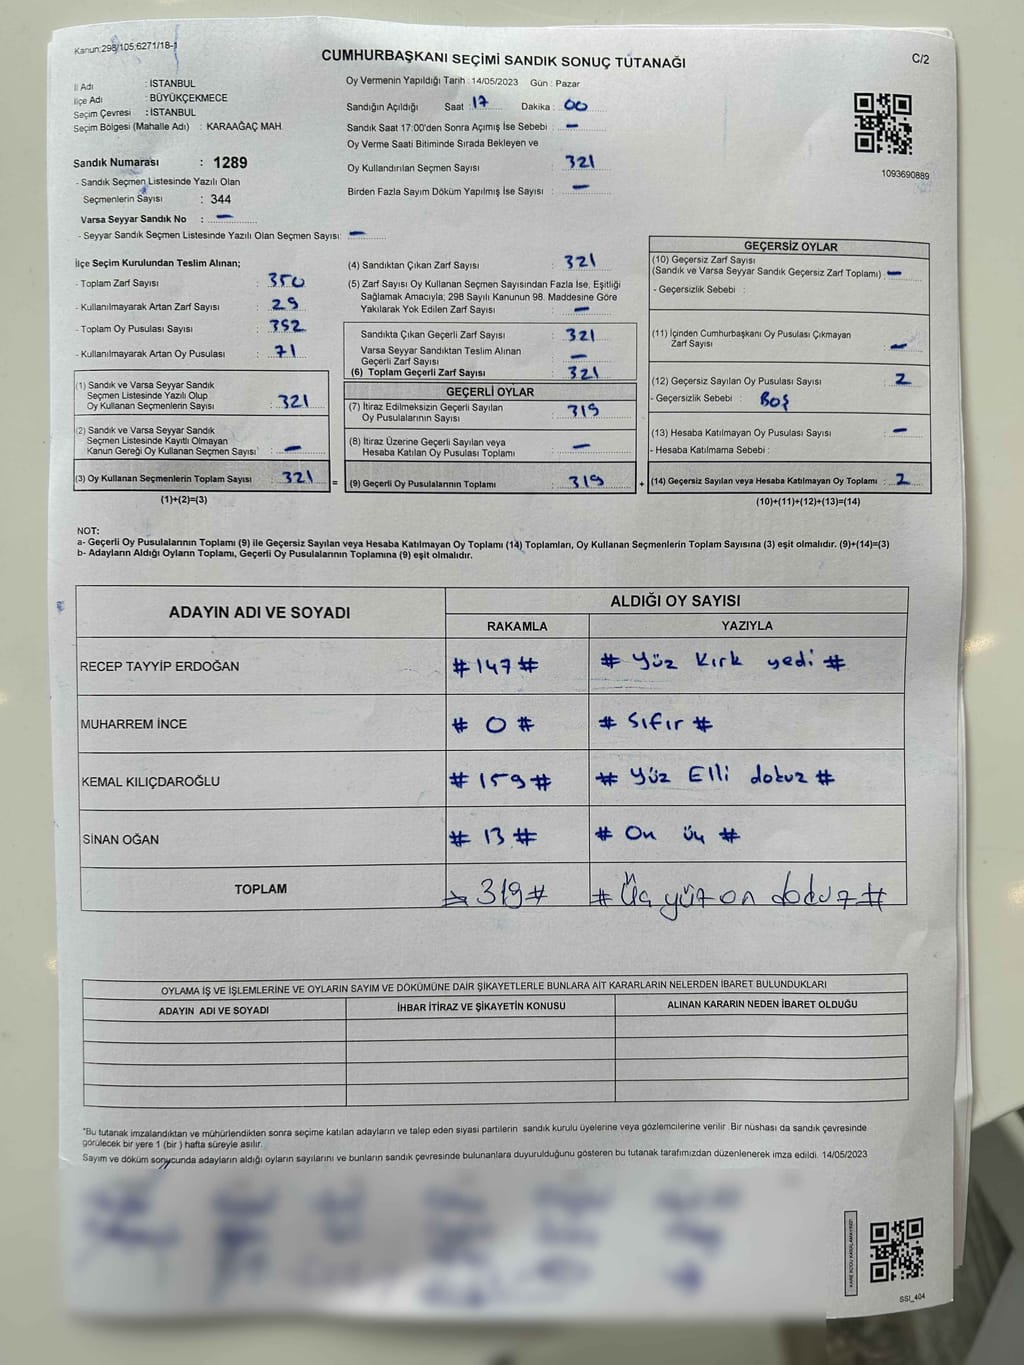 Kanun:298/105,6271/18-1
CUMHURBAŞKANI SEÇİMİ SANDIK SONUÇ TUTANAĞI
C/2
İl Adı : İSTANBUL
İlçe Adı : BÜYÜKÇEKMECE
Seçim Çevresi : İSTANBUL
Seçim Bölgesi (Mahalle Adı) : KARAAĞAÇ MAH.
Oy Vermenin Yapıldığı Tarih : 14/05/2023 Gün : Pazar
Sandığın Açıldığı Saat : 17 Dakika : 00
Sandık Saat 17:00'den Sonra Açımış İse Sebebi : -
Oy Verme Saati Bitiminde Sırada Bekleyen ve
Oy Kullandırılan Seçmen Sayısı : 321
Birden Fazla Sayım Döküm Yapılmış İse Sayısı : -
1093690889
Sandık Numarası : 1289
- Sandık Seçmen Listesinde Yazılı Olan
Seçmenlerin Sayısı : 344
Varsa Seyyar Sandık No : -
- Seyyar Sandık Seçmen Listesinde Yazılı Olan Seçmen Sayısı: -
İlçe Seçim Kurulundan Teslim Alınan;
- Toplam Zarf Sayısı : 350
- Kullanılmayarak Artan Zarf Sayısı : 29
- Toplam Oy Pusulası Sayısı : 392
- Kullanılmayarak Artan Oy Pusulası : 71
(1) Sandık ve Varsa Seyyar Sandık
Seçmen Listesinde Yazılı Olup
Oy Kullanan Seçmenlerin Sayısı : 321
(2) Sandık ve Varsa Seyyar Sandık
Seçmen Listesinde Kayıtlı Olmayan
Kanun Gereği Oy Kullanan Seçmen Sayısı : -
(3) Oy Kullanan Seçmenlerin Toplam Sayısı : 321 =
(1)+(2)=(3)
(4) Sandıktan Çıkan Zarf Sayısı : 321
(5) Zarf Sayısı Oy Kullanan Seçmen Sayısından Fazla İse, Eşitliği
Sağlamak Amacıyla; 298 Sayılı Kanunun 98. Maddesine Göre
Yakılarak Yok Edilen Zarf Sayısı : -
Sandıkta Çıkan Geçerli Zarf Sayısı : 321
Varsa Seyyar Sandıktan Teslim Alınan
Geçerli Zarf Sayısı : -
(6) Toplam Geçerli Zarf Sayısı : 321
GEÇERLİ OYLAR
(7) İtiraz Edilmeksizin Geçerli Sayılan
Oy Pusulalarının Sayısı : 319
(8) İtiraz Üzerine Geçerli Sayılan veya
Hesaba Katılan Oy Pusulası Toplamı : -
(9) Geçerli Oy Pusulalarının Toplamı : 319 +
GEÇERSİZ OYLAR
(10) Geçersiz Zarf Sayısı
(Sandık ve Varsa Seyyar Sandık Geçersiz Zarf Toplamı) : -
- Geçersizlik Sebebi :
(11) İçinden Cumhurbaşkanı Oy Pusulası Çıkmayan
Zarf Sayısı : -
(12) Geçersiz Sayılan Oy Pusulası Sayısı : 2
- Geçersizlik Sebebi : Boş
(13) Hesaba Katılmayan Oy Pusulası Sayısı : -
- Hesaba Katılmama Sebebi :
(14) Geçersiz Sayılan veya Hesaba Katılmayan Oy Toplamı : 2
(10)+(11)+(12)+(13)=(14)
NOT:
a- Geçerli Oy Pusulalarının Toplamı (9) ile Geçersiz Sayılan veya Hesaba Katılmayan Oy Toplamı (14) Toplamları, Oy Kullanan Seçmenlerin Toplam Sayısına (3) eşit olmalıdır. (9)+(14)=(3)
b- Adayların Aldığı Oyların Toplamı, Geçerli Oy Pusulalarının Toplamına (9) eşit olmalıdır.
ADAYIN ADI VE SOYADI
ALDIĞI OY SAYISI
RAKAMLA YAZIYLA
RECEP TAYYİP ERDOĞAN #147# # Yüz Kırk yedi #
MUHARREM İNCE # 0 # # Sıfır #
KEMAL KILIÇDAROĞLU #159# # Yüz Elli dokuz #
SİNAN OĞAN # 13 # # On üç #
TOPLAM #319# # Üç yüz on dokuz #
OYLAMA İŞ VE İŞLEMLERİNE VE OYLARIN SAYIM VE DÖKÜMÜNE DAİR ŞİKAYETLERLE BUNLARA AİT KARARLARIN NELERDEN İBARET BULUNDUKLARI
ADAYIN ADI VE SOYADI İHBAR İTİRAZ VE ŞİKAYETİN KONUSU ALINAN KARARIN NEDEN İBARET OLDUĞU
*Bu tutanak imzalandıktan ve mühürlendikten sonra seçime katılan adayların ve talep eden siyasi partilerin sandık kurulu üyelerine veya gözlemcilerine verilir. Bir nüshası da sandık çevresinde
görülecek bir yere 1 (bir ) hafta süreyle asılır.
Sayım ve döküm sonucunda adayların aldığı oyların sayılarını ve bunların sandık çevresinde bulunanlara duyurulduğunu gösteren bu tutanak tarafımızdan düzenlenerek imza edildi. 14/05/2023
SSI_404